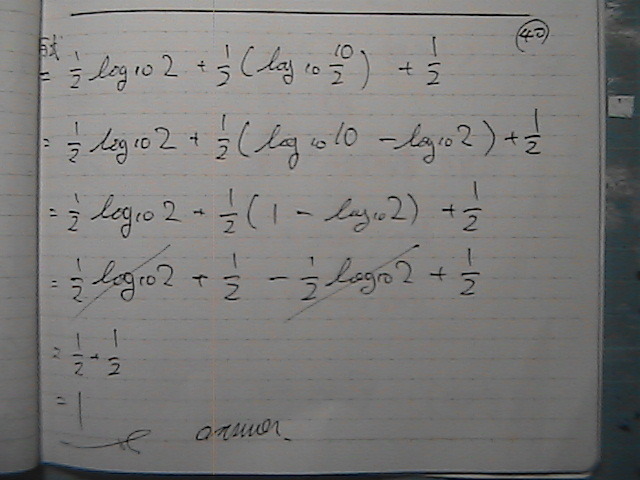 40
与式
= 1/2 log₁₀2 + 1/2 (log₁₀ 10/2) + 1/2
= 1/2 log₁₀2 + 1/2 (log₁₀10 - log₁₀2) + 1/2
= 1/2 log₁₀2 + 1/2 (1 - log₁₀2) + 1/2
= 1/2 log₁₀2 + 1/2 - 1/2 log₁₀2 + 1/2
= 1/2 + 1/2
= 1
answer